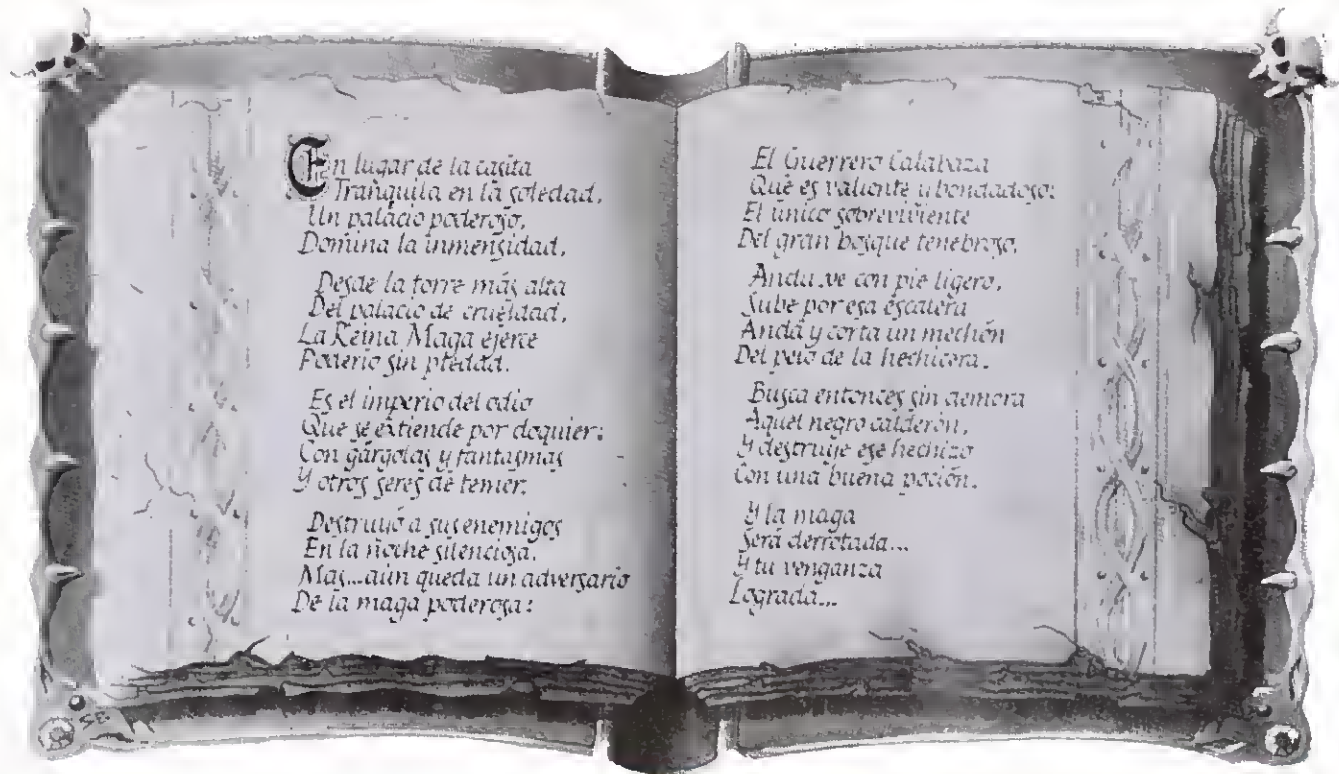 En lugar de la casita
Tranquila en la soledad,
Un palacio poderoso,
Domina la inmensidad.
Desde la torre más alta
Del palacio de crueldad,
La Reina Maga ejerce
Poderío sin piedad.
Es el imperio del odio
Que se extiende por doquier:
Con gárgolas y fantasmas
Y otros seres de temer.
Destruyó a sus enemigos
En la noche silenciosa.
Mas...aún queda un adversario
De la maga poderosa:
El Guerrero Calabaza
Que es valiente y bondadoso:
El único sobreviviente
Del gran bosque tenebroso.
Anda, ve con pie ligero,
Sube por esa escalera
Anda y corta un mechón
Del pelo de la hechicera.
Busca entonces sin demora
Aquel negro calderón,
Y destruye ese hechizo
Con una buena poción.
Y la maga
Será derrotada...
Y tu venganza
Lograda...